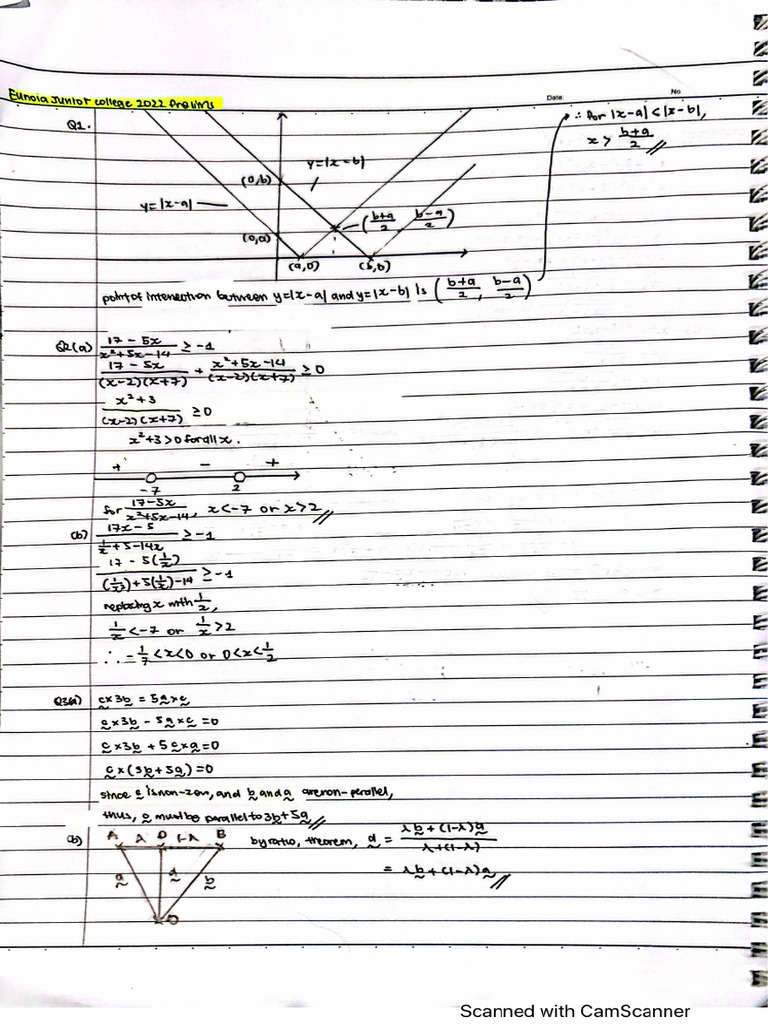 Eunoia Junior College 2022 Prelims
Date:
No.
Q1.
y=|x-b|
(0,b)
y=|x-a|
(b+a/2, b-a/2)
(0,a)
(a,0) (b,0)
∴ for |x-a| < |x-b|,
x > b+a/2
point of intersection between y=|x-a| and y=|x-b| is (b+a/2, b-a/2)
Q2(a) 17-5x/x²+5x-14 ≥ -1
17-5x/(x-2)(x+7) + x²+5x-14/(x-2)(x+7) ≥ 0
x²+3/(x-2)(x+7) ≥ 0
x²+3>0 for all x.
+ - +
-7 2
for 17-5x/x²+5x-14, x<-7 or x>2
(b) 17x-5/1/x+5-14x ≥ -1
17-5(1/x)/(1/x²)+5(1/x)-14 ≥ -1
replacing x with 1/x,
1/x<-7 or 1/x>2
∴ -1/7<x<0 or 0<x<1/2
Q3(a) c×3b = 5a×c
c×3b - 5a×c = 0
c×3b + 5c×a = 0
c×(3b+5a) = 0
since c is non-zero, and b and a are non-parallel,
thus, c must be parallel to 3b+5a
(b) A λ D 1-λ B
a d b
O
by ratio, theorem, d = λb+(1-λ)a/λ+(1-λ)
= λb+(1-λ)a
Scanned with CamScanner